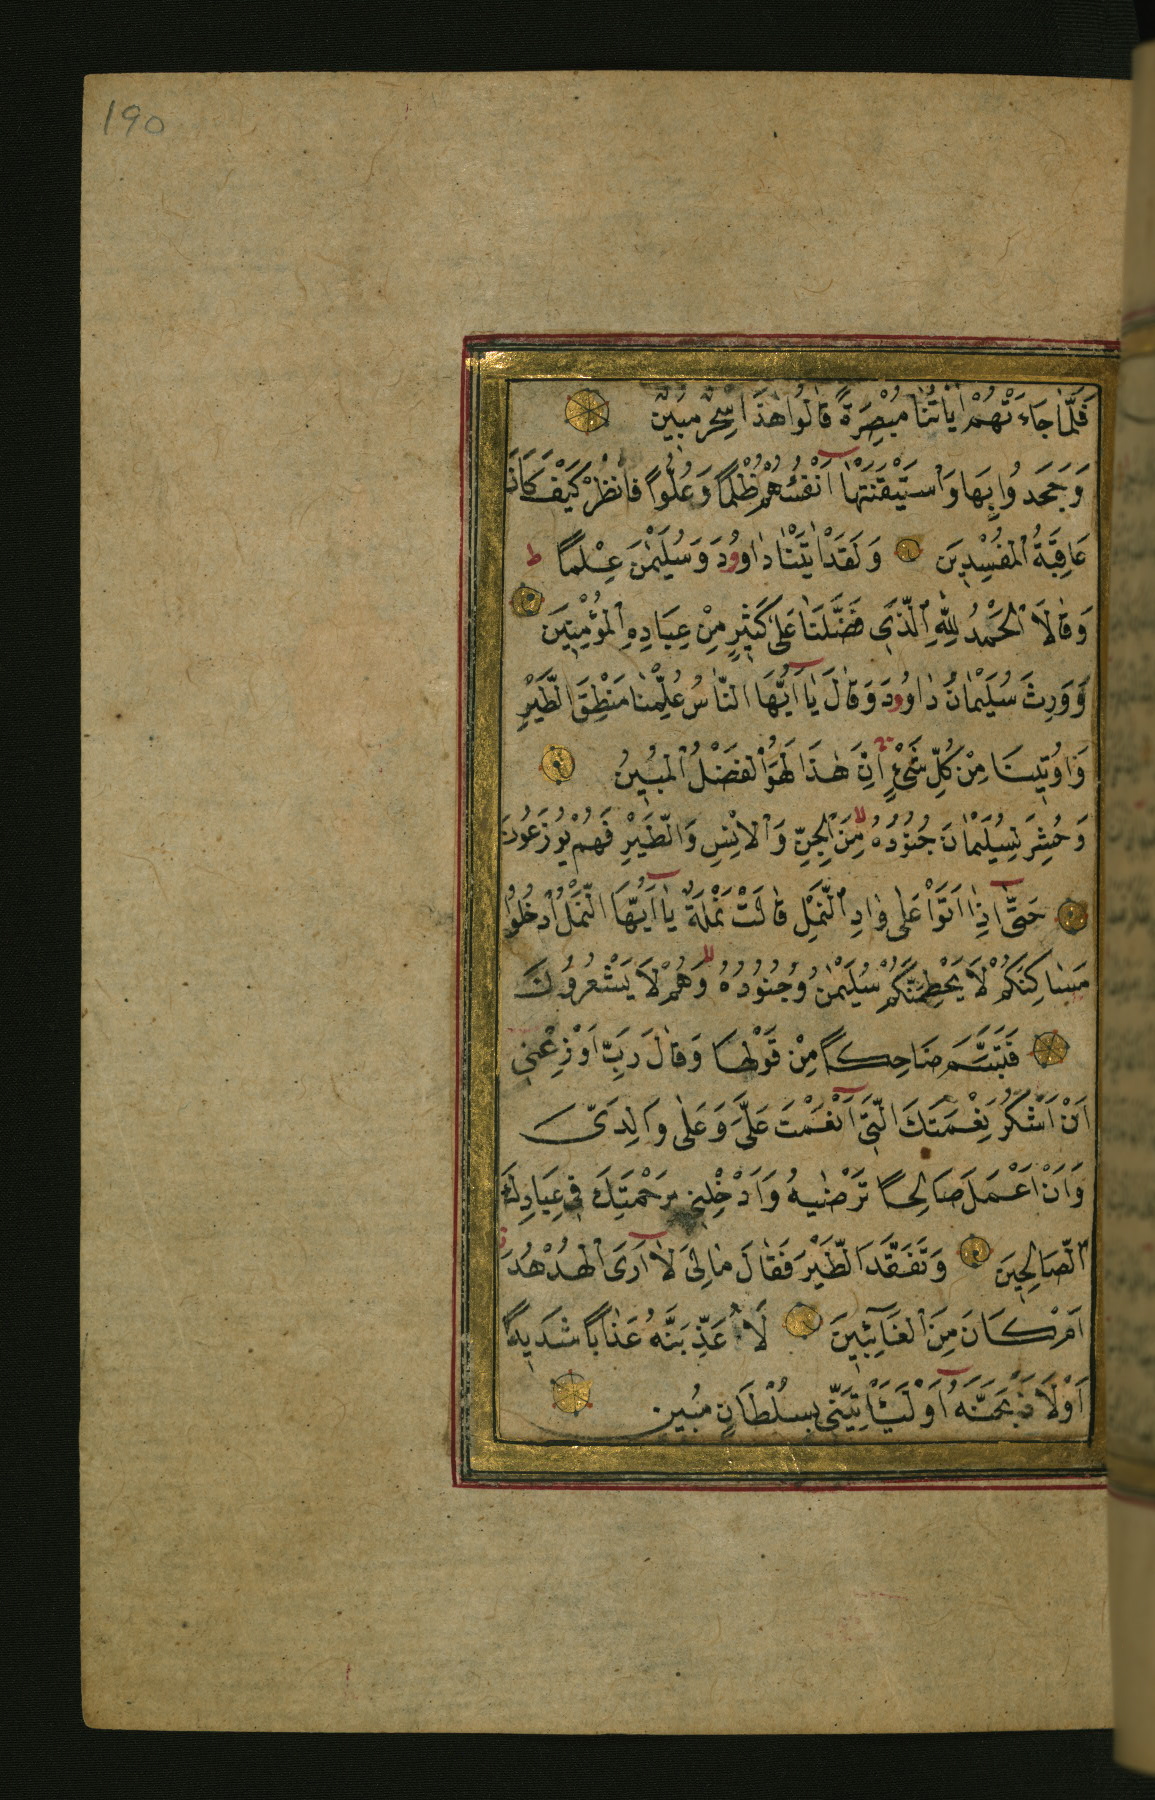 190
فَلَمَّا جَاءَتْهُمْ اٰيَاتُنَا مُبْصِرَةً قَالُوا هٰذَا سِحْرٌ مُبِينٌ
وَجَحَدُوا بِهَا وَاسْتَيْقَنَتْهَا اَنْفُسُهُمْ ظُلْمًا وَعُلُوًّا فَانْظُرْ كَيْفَ كَانَ
عَاقِبَةُ الْمُفْسِدِينَ وَلَقَدْ اٰتَيْنَا دَاوُودَ وَسُلَيْمٰنَ عِلْمًا ط
وَقَالَا الْحَمْدُ لِلّٰهِ الَّذِي فَضَّلَنَا عَلٰى كَثِيرٍ مِنْ عِبَادِهِ الْمُؤْمِنِينَ
وَوَرِثَ سُلَيْمَانُ دَاوُودَ وَقَالَ يَا اَيُّهَا النَّاسُ عُلِّمْنَا مَنْطِقَ الطَّيْرِ
وَاُوتِينَا مِنْ كُلِّ شَيْءٍ اِنَّ هٰذَا لَهُوَ الْفَضْلُ الْمُبِينُ
وَحُشِرَ لِسُلَيْمَانَ جُنُودُهُ مِنَ الْجِنِّ وَالْاِنْسِ وَالطَّيْرِ فَهُمْ يُوزَعُونَ
حَتّٰى اِذَا اَتَوْا عَلٰى وَادِ النَّمْلِ قَالَتْ نَمْلَةٌ يَا اَيُّهَا النَّمْلُ ادْخُلُوا
مَسَاكِنَكُمْ لَا يَحْطِمَنَّكُمْ سُلَيْمٰنُ وَجُنُودُهُ لا وَهُمْ لَا يَشْعُرُونَ
فَتَبَسَّمَ ضَاحِكًا مِنْ قَوْلِهَا وَقَالَ رَبِّ اَوْزِعْنِي
اَنْ اَشْكُرَ نِعْمَتَكَ الَّتِي اَنْعَمْتَ عَلَيَّ وَعَلٰى وَالِدَيَّ
وَاَنْ اَعْمَلَ صَالِحًا تَرْضٰيهُ وَاَدْخِلْنِي بِرَحْمَتِكَ فِي عِبَادِكَ
الصَّالِحِينَ وَتَفَقَّدَ الطَّيْرَ فَقَالَ مَا لِيَ لَا اَرَى الْهُدْهُدَ
اَمْ كَانَ مِنَ الْغَائِبِينَ لَاُعَذِّبَنَّهُ عَذَابًا شَدِيدًا
اَوْ لَاَذْبَحَنَّهُ اَوْ لَيَأْتِيَنِّي بِسُلْطَانٍ مُبِينٍ